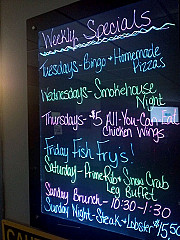 Weekly Specials
Tuesdays - Bingo + Homemade
Pizzas
Wednesdays - Smokehouse
Night
Thursdays - $5 All-You-Can-Eat
Chicken Wings
Friday Fish Frys!
Saturday - Prime Rib + Snow Crab
Leg Buffet
Sunday Brunch - 10:30-1:30
Sunday Night - Steak + Lobster $15.50
CAU